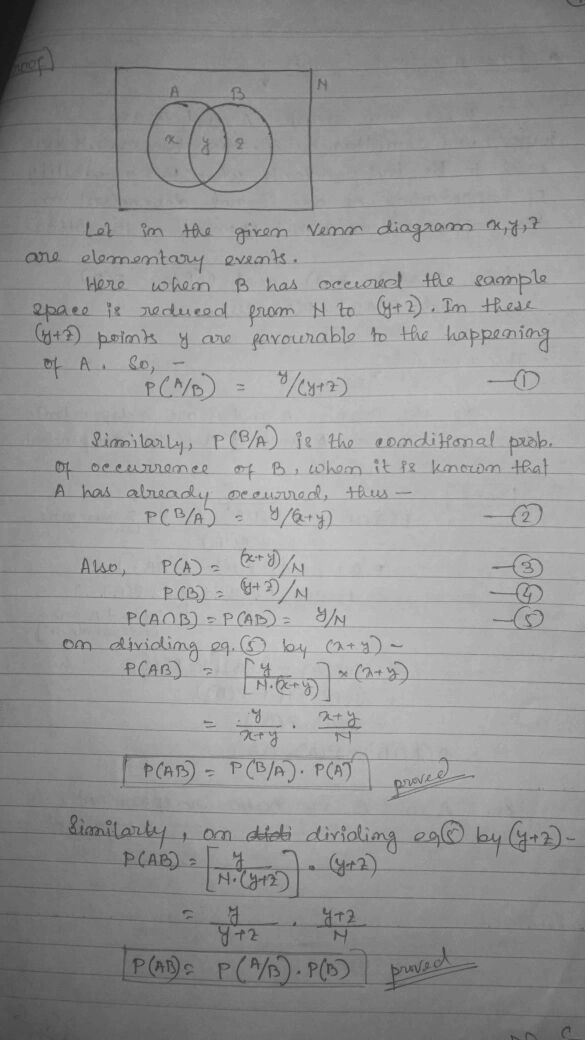 Proof)
N
A B
x y z
Let in the given Venn diagram x,y,z
are elementary events.
Here when B has occured the sample
space is reduced from N to (y+z). In these
(y+z) points y are favourable to the happening
of A. So, -
P(A/B) = y/(y+z) —①
Similarly, P(B/A) is the conditional prob.
of occurrence of B, when it is known that
A has already occurred, thus -
P(B/A) = y/(x+y) —②
Also, P(A) = (x+y)/N —③
P(B) = (y+z)/N —④
P(A∩B) = P(AB) = y/N —⑤
on dividing eq. ⑤ by (x+y) -
P(AB) = [y / N.(x+y)] × (x+y)
= y/x+y . x+y/N
P(AB) = P(B/A). P(A) proved
Similarly, on dividing eq ⑤ by (y+z) -
P(AB) = [y / N.(y+z)] . (y+z)
= y/y+z . y+z/N
P(AB) = P(A/B). P(B) proved